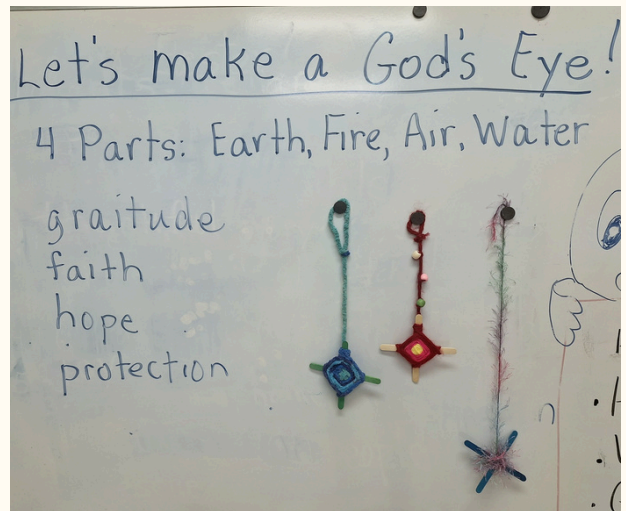 Let's make a God's Eye!
4 Parts: Earth, Fire, Air, Water
graitude
faith
hope
protection